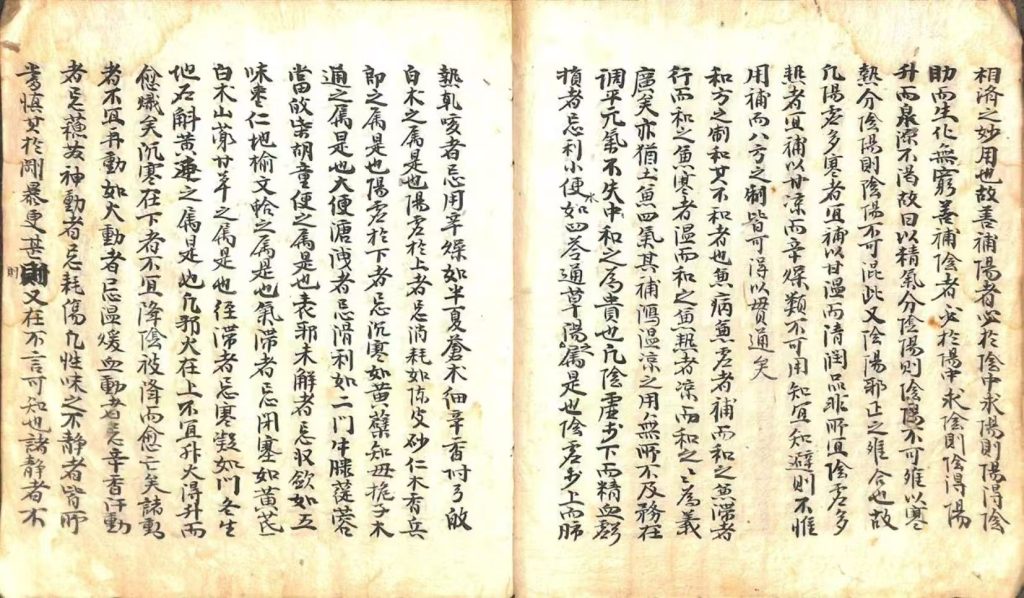 相済之妙用也故善補陽者必於陰中求陽則陽得陰
助而生化無窮善補陰者必於陽中求陰則陰得陽
升而泉源不渇故曰以精氣分陰陽則陰陽不可離以寒
熱分陰陽則陰陽不可混此又陰陽邪正之離合也故
凢陽虛多寒者宜補以甘温而清潤品非所宜陰虛多
熱者宜補以甘凉而辛燥類不可用知宜知避則不惟
用補而八方之制皆可得以貫通矣
和方之制和其不和者也凢病兼虛者補而和之兼滞者
行而和之兼寒者温而和之兼熱者凉而和之〻為義
廣矣亦猶土兼四氣其補瀉温凉之用無所不及務在
調平元氣不失中和之為貴也凢陰虛於下而精血虧
損者忌利小便水如四苓通草湯属是也陰虛於上而肺
熱乾咳者忌用辛燥如半夏蒼朮細辛香附弓𣁽
白朮之属是也陽虛於上者忌消耗如陈皮砂仁木香兵
即之属是也陽虛於下者忌沉寒如黄蘗知母梔子木
通之属是也大便溏洩者忌滑利如二門牛膝蓯蓉
當𣁽柴胡童便之属是也表邪未解者忌収歛如五
味棗仁地榆文蛤之属是也氣滞者忌閉塞如黄芪
白朮山藥甘草之属是也經滞者忌寒凝如門冬生
地石斛黄連之属是也凢邪火在上不宜升火得升而
愈熾矣沉寒在下者不宜降陰被降而愈亡矣諸動
者不宜再動如火動者忌温煖血動者忌辛香汗動
者忌蘓散神動者忌耗傷凢性味之不静者皆所
當慎其於剛暴更甚則又在不言可知也諸静者不
則